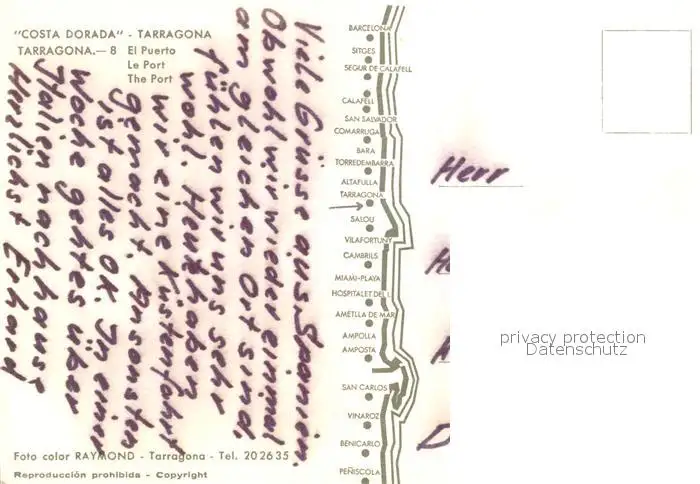 "COSTA DORADA" - TARRAGONA
TARRAGONA.— 8 El Puerto
Le Port
The Port
Viele Grüsse aus Spanien.
Obwohl wir wieder einmal
am gleichen Ort sind
fühlen wir uns sehr
wohl. Heut haben
wir eine Küstenfahrt
gemacht. Ansonsten
ist alles OK. In einer
Woche geht es über
Italien nach haus
Herzlichst Erhard
Foto color RAYMOND - Tarragona - Tel. 202635
Reproducción prohibida - Copyright
BARCELONA
SITGES
SEGUR DE CALAFELL
CALAFELL
SAN SALVADOR
COMARRUGA
BARA
TORREDEMBARRA
ALTAFULLA
TARRAGONA
SALOU
VILAFORTUNY
CAMBRILS
MIAMI-PLAYA
HOSPITALET DEL I.
AMETLLA DE MAR
AMPOLLA
AMPOSTA
SAN CARLOS
VINAROZ
BENICARLO
PEÑISCOLA
Herr
privacy protection
Datenschutz